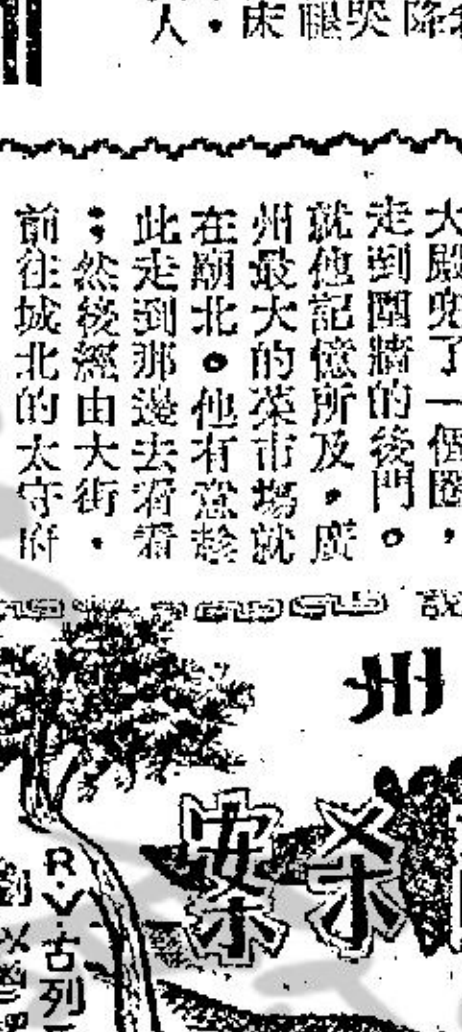 降
哭
腿
床
人．
大殿兜了一個圈，
走到圍牆的後門。
就他記憶所及，廣
州最大的菜市場就
在廟北。他有意趁
此走到那邊去看看
；然後經由大街．
前往城北的太守府
州
殺案
R．V．古列